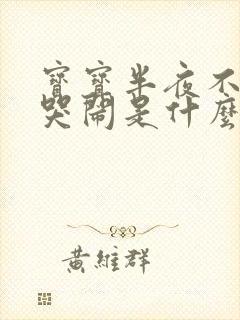 寶寶半夜不
哭鬧是什麼
黃維群